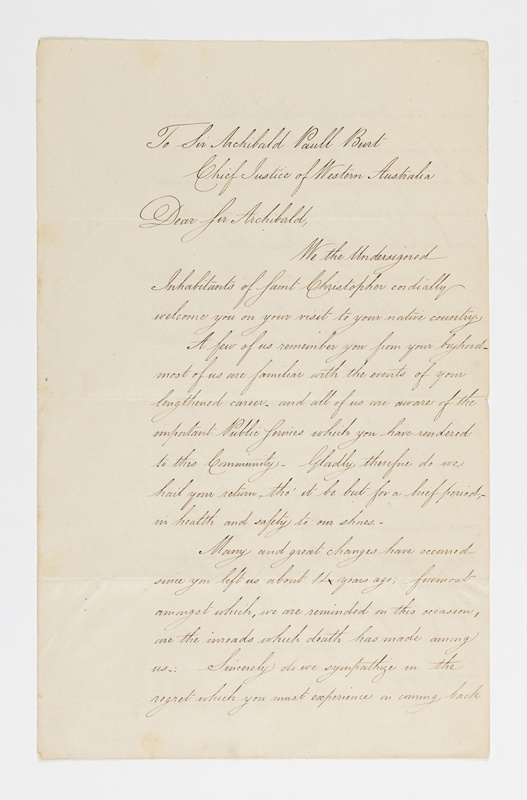 To Sir Archibald Paull Burt
Chief Justice of Western Australia
Dear Sir Archibald,
We the Undersigned
Inhabitants of Saint Christopher cordially
welcome you on your visit to your native country.
A few of us remember you from your boyhood_
most of us are familiar with the events of your
lengthened career_ and all of us are aware of the
important Public Services which you have rendered
to this Community_ Gladly therefore do we
hail your return_ tho' it be but for a brief period,_
in health and safety to our shores._
Many and great changes have occurred
since you left us about 12 years ago; foremost
amongst which, we are reminded on this occasion,
are the inroads which death has made among
us_: Sincerely do we sympathize in the
regret which you must experience on coming back